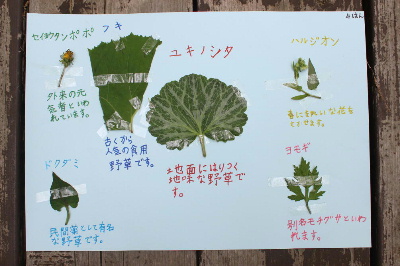 おばん
セイヨウタンポポ
外来の元
気者といわ
れています。
フキ
古くから
人気の食用
野草です。
ユキノシタ
地面にはりつく
地味な野草で
す。
ハルジオン
春にきれいな花を
さかせます。
ドクダミ
民間薬として有名
な野草です。
ヨモギ
別名モチグサといわ
れます。